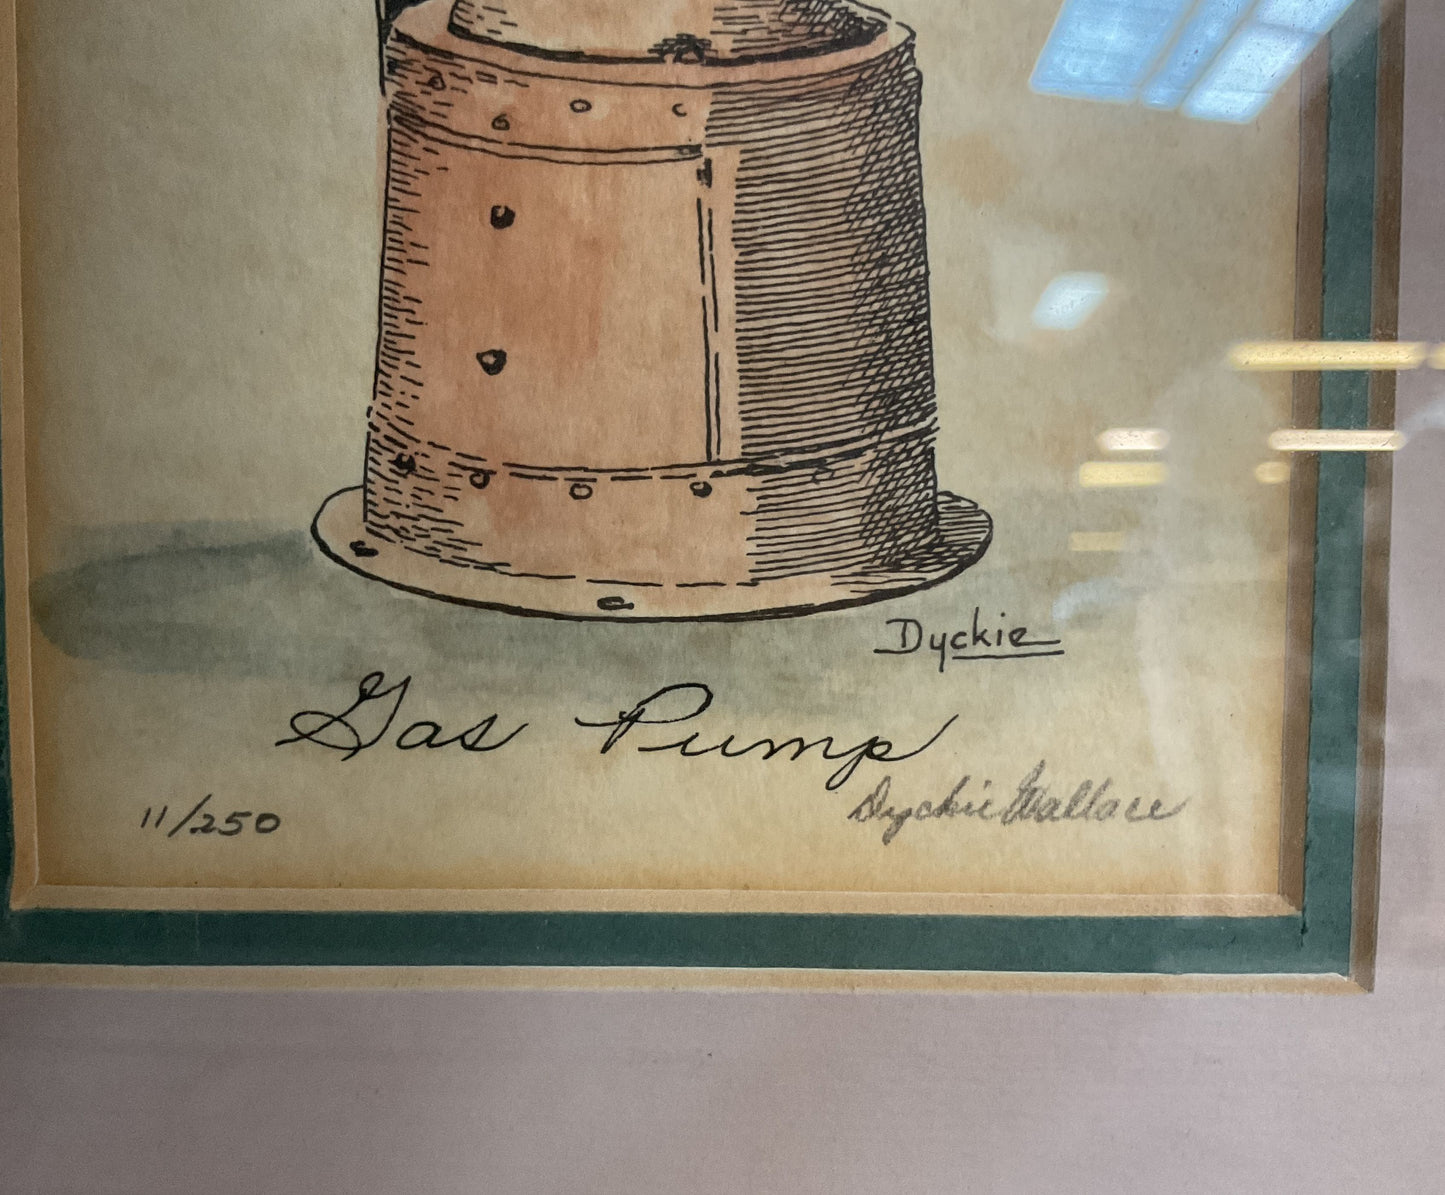 Dyckie
Gas Pump
Dyckie Wallace
11/250